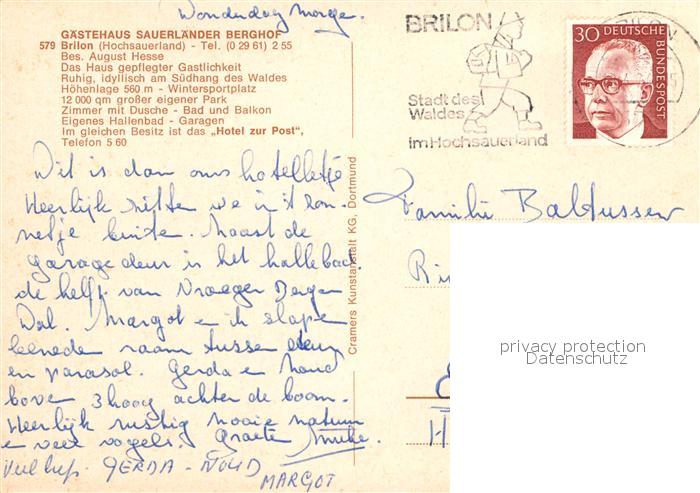 Wonderdag morge.
GÄSTEHAUS SAUERLÄNDER BERGHOF
579 Brilon (Hochsauerland) - Tel. (0 29 61) 2 55
Bes. August Hesse
Das Haus gepflegter Gastlichkeit
Ruhig, idyllisch am Südhang des Waldes
Höhenlage 560 m - Wintersportplatz
12 000 qm großer eigener Park
Zimmer mit Dusche - Bad und Balkon
Eigenes Hallenbad - Garagen
Im gleichen Besitz ist das „Hotel zur Post“,
Telefon 5 60
Dit is dan ons hotelletje
Heerlijk zitten we in 't zon-
netje buite. Naast de
garage deur is het hallebad
de helft van Vroeger Berge
Dal. Margot e ik slape
benede raam tusse deur
en parasol. Gerda e Noud
bove 3 hoog achter de boom.
Heerlijk rustig mooie natuur
e veel vogels. Groete
GERDA - NOUD
MARGOT
Cramers Kunstanstalt KG, Dortmund
BRILON
Stadt des
Waldes
im Hochsauerland
30 DEUTSCHE BUNDESPOST
Familie Baltussen
privacy protection
Datenschutz